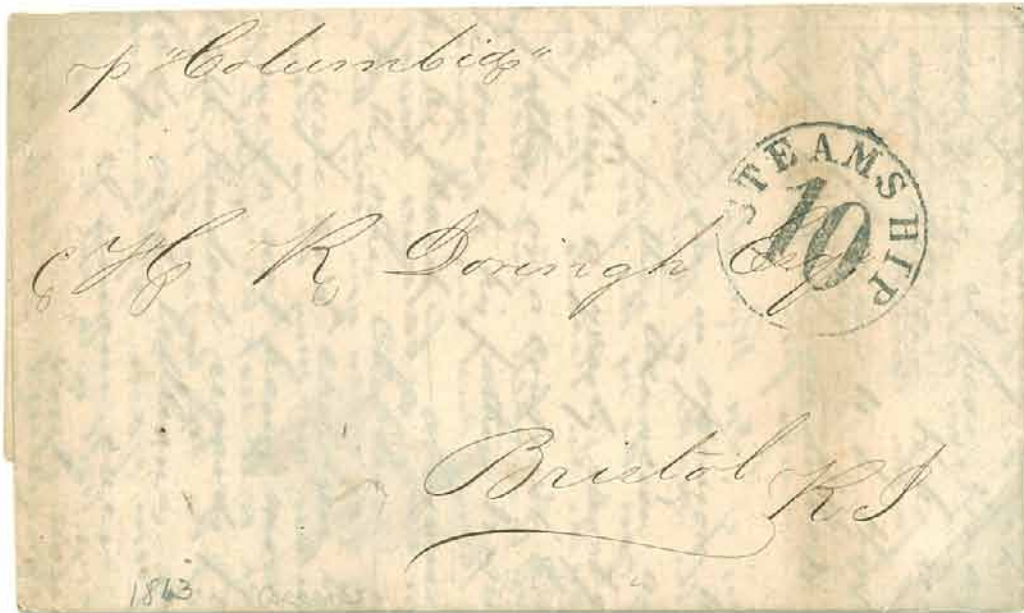 p "Columbia"
STEAMSHIP
10
H R Doringh Esqr
Bristol
R I
1863